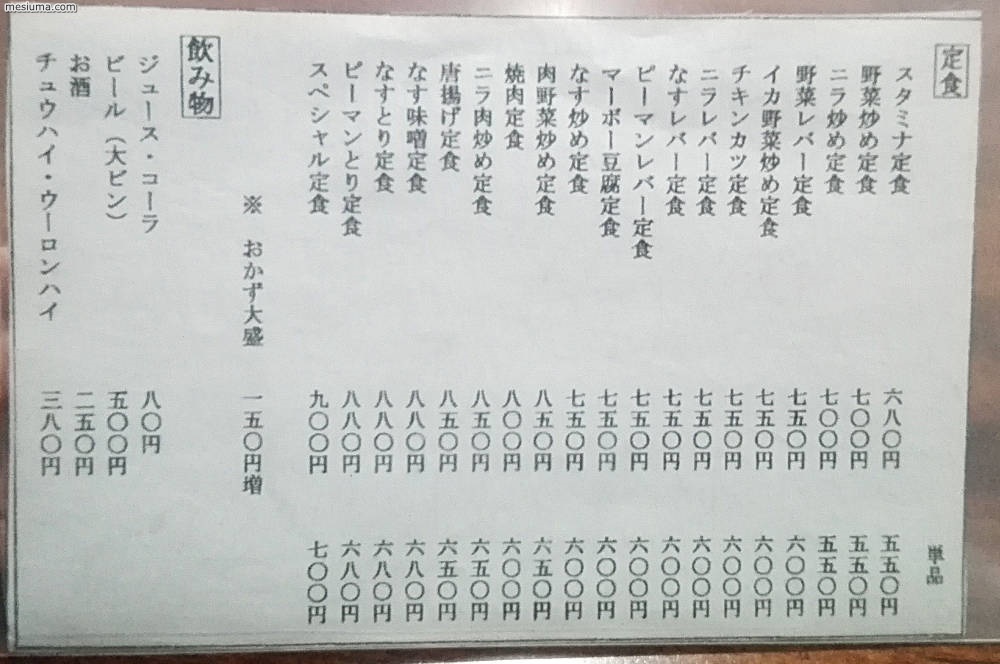 mesiuma.com
定食 単品
スタミナ定食 六八〇円 五五〇円
野菜炒め定食 七〇〇円 五五〇円
ニラ炒め定食 七〇〇円 五五〇円
野菜レバー定食 七五〇円 六〇〇円
イカ野菜炒め定食 七五〇円 六〇〇円
チキンカツ定食 七五〇円 六〇〇円
ニラレバー定食 七五〇円 六〇〇円
なすレバー定食 七五〇円 六〇〇円
ピーマンレバー定食 七五〇円 六〇〇円
マーボー豆腐定食 七五〇円 六〇〇円
なす炒め定食 七五〇円 六〇〇円
肉野菜炒め定食 八五〇円 六五〇円
焼肉定食 八〇〇円 六〇〇円
ニラ肉炒め定食 八五〇円 六五〇円
唐揚げ定食 八五〇円 六五〇円
なす味噌定食 八八〇円 六八〇円
なすとり定食 八八〇円 六八〇円
ピーマンとり定食 八八〇円 六八〇円
スペシャル定食 九〇〇円 七〇〇円
※ おかず大盛 一五〇円増
飲み物
ジュース・コーラ 八〇円
ビール（大ビン） 五〇〇円
お酒 二五〇円
チュウハイ・ウーロンハイ 三八〇円